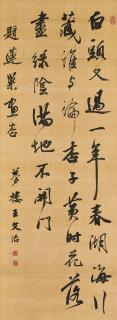 白頭又過一年春湖海行
藏誰與論杏子黃時花落
盡綠陰滿地不開門
題蓮巢畫杏
夢樓王文治